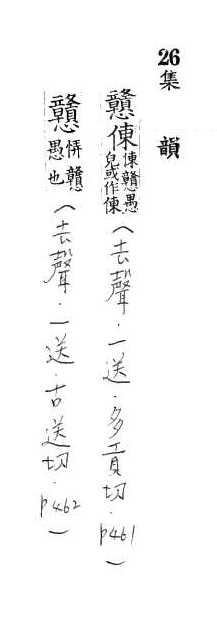 26集 韻
戇倲倲戇愚皃或作倲(去聲.一送.多貢切.p461)
戇恲戇愚也(去聲.一送.古送切.p462)